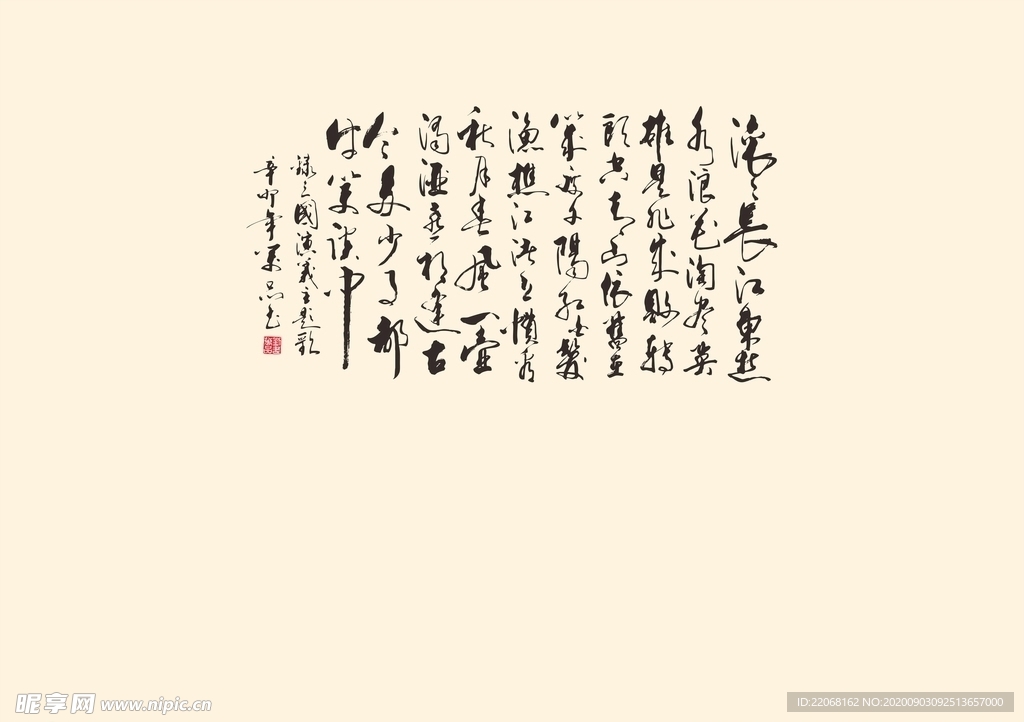 滚々長江東逝
水浪花淘尽英
雄是非成敗轉
頭空青山依舊在
幾度夕陽紅白髮
漁樵江渚上慣看
秋月春風一壺
濁酒喜相逢古
今多少事都
付笑談中
錄三國演義主題歌
辛卯年
昵享网 www.nipic.cn
ID:22068162 NO:20200903092513657000